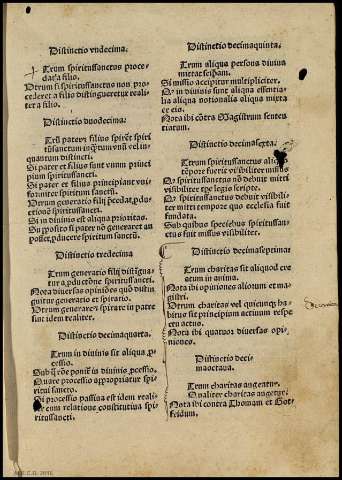 Distinctio vndecima.
Trum spiritussanctus proce-
dat a filio.
Utrum si spiritussanctus non pro-
cederet a filio distingueretur reali-
ter a filio.
Distinctio duodecima.
Trũ pater ⁊ filius spirẽt spiri
tũsanctum inq̃tum vnũ vel in-
quantum distincti.
Si pater et filius sunt vnum princi
pium spiritussancti.
Si pater et filius principiant vni-
formiter spiritum sanctũ.
Utrum generatio filij p̃cedat ꝓdu-
ctionẽ spiritussancti.
Si in diuinis est aliqua prioritas.
Suꝓposito si pater nõ generaret an
posset ꝓducere spiritum sanctũ.
Distinctio tredecima
Trum generatio filij distĩgua-
tur a ꝓductõne spiritussancti.
Nota diuersas opiniões quõ distin
guitur generatio et spiratio.
Utrum generare ⁊ spirare in patre
sint idem realiter.
Distinctio decimaquarta.
Trum in diuinis sit aliqua ꝓ-
cessio.
Sub q̃ rõe ponit̃ in diuinis ꝓcessio.
Quare processio appropriatur spi-
ritui sancto.
Si processio passiua est idem reali-
ter cum relatione constitutiua spi-
ritussancti.
Distinctio decimaquinta.
Trum aliqua persona diuina
mittat seip̃am.
Si missio accipitur multipliciter.
An in diuinis sunt aliqua essentia-
lia aliqua notionalia aliqua mixta
ex eis.
Nota ibi cõtra Magistrum senten-
tiarum.
Distinctio decimasexta.
Trum spiritussanctus aliq̃
tẽpore fuerit visibiliter missus
An spiritussanctus nõ debuit mitti
visibiliter tp̃e legis scripte.
An spiritussanctus debuit visibili-
ter mitti tempore quo ecclesia fuit
fundata.
Sub quibus speciebus spiritussan-
ctus fuit missus visibiliter.
Distinctio decimaseptima
Trum charitas sit aliquod cre
atum in anima.
Nota ibi opiniones aliorum et ma-
gistri.
Utrum charitas vel quicunq; ha-
bitus sit principium actiuum respe
ctu actus.
Nota ibi quatuor diuersas opi-
niones.
Distinctio deci-
maoctaua.
Trum charitas augeatur.
Qualiter charitas augetur.
Nota ibi contra Thomam et Got-
fridum.